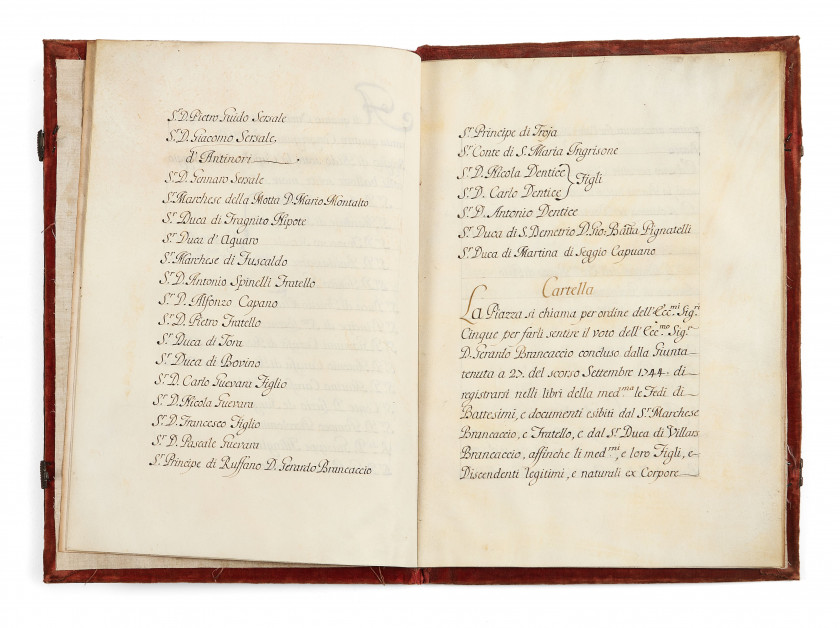 Sr. D. Pietro Guido Sersale
Sr. D. Giacomo Sersale,
d'Antinori
Sr. D. Gennaro Sersale
Sr. Marchese della Motta D. Mario Montalto
Sr. Duca di Fragnito Nipote
Sr. Duca d'Aquaro
Sr. Marchese di Fuscaldo
Sr. D. Antonio Spinelli Fratello
Sr. D. Alfonzo Capano
Sr. D. Pietro Fratello
Sr. Duca di Tora
Sr. Duca di Bovino
Sr. D. Carlo Guevara Figlio
Sr. D. Nicola Guevara
Sr. D. Francesco Figlio
Sr. D. Pascale Guevara
Sr. Principe di Ruffano D. Gerardo Brancaccio
Sr. Principe di Troja
Sr. Conte di S. Maria Ingrisone
Sr. D. Nicola Dentice
Sr. D. Carlo Dentice } Figli
Sr. D. Antonio Dentice
Sr. Duca di S. Demetrio D. Gio: Batta Pignatelli
Sr. Duca di Martina di Seggio Capuano
Cartella
La Piazza si chiama per ordine dell'Ecc.mi Sig.ri
Cinque per farli sentire il voto dell'Ecc.mo Sig.r
D. Gerardo Brancaccio concluso dalla Giunta
tenuta a 23. del scorso Settembre 1744. di
registrarsi nelli libri della med.ma le Fedi di
Battesimi, e documenti esibiti dal Sr. Marchese
Brancaccio, e Fratello, e dal Sr. Duca di Villars
Brancaccio, affinche li med.mi, e loro Figli, e
Discendenti legitimi, e naturali ex Corpore